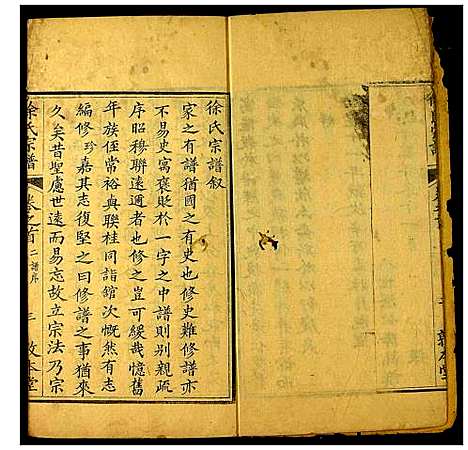 徐氏宗譜叙
家之有譜猶國之有史也修史難修譜亦
不易史寓褒貶於一字之中譜則别親疏
序昭穆聯遠邇者也修之豈可緩哉憶舊
年族侄常裕與聯桂同詣舘次慨然有志
編修珍嘉其志復堅之曰修譜之事猶來
久矣昔聖慮世遠而易忘故立宗法乃宗
徐氏宗譜
卷之首 二譜序 三 敦本堂